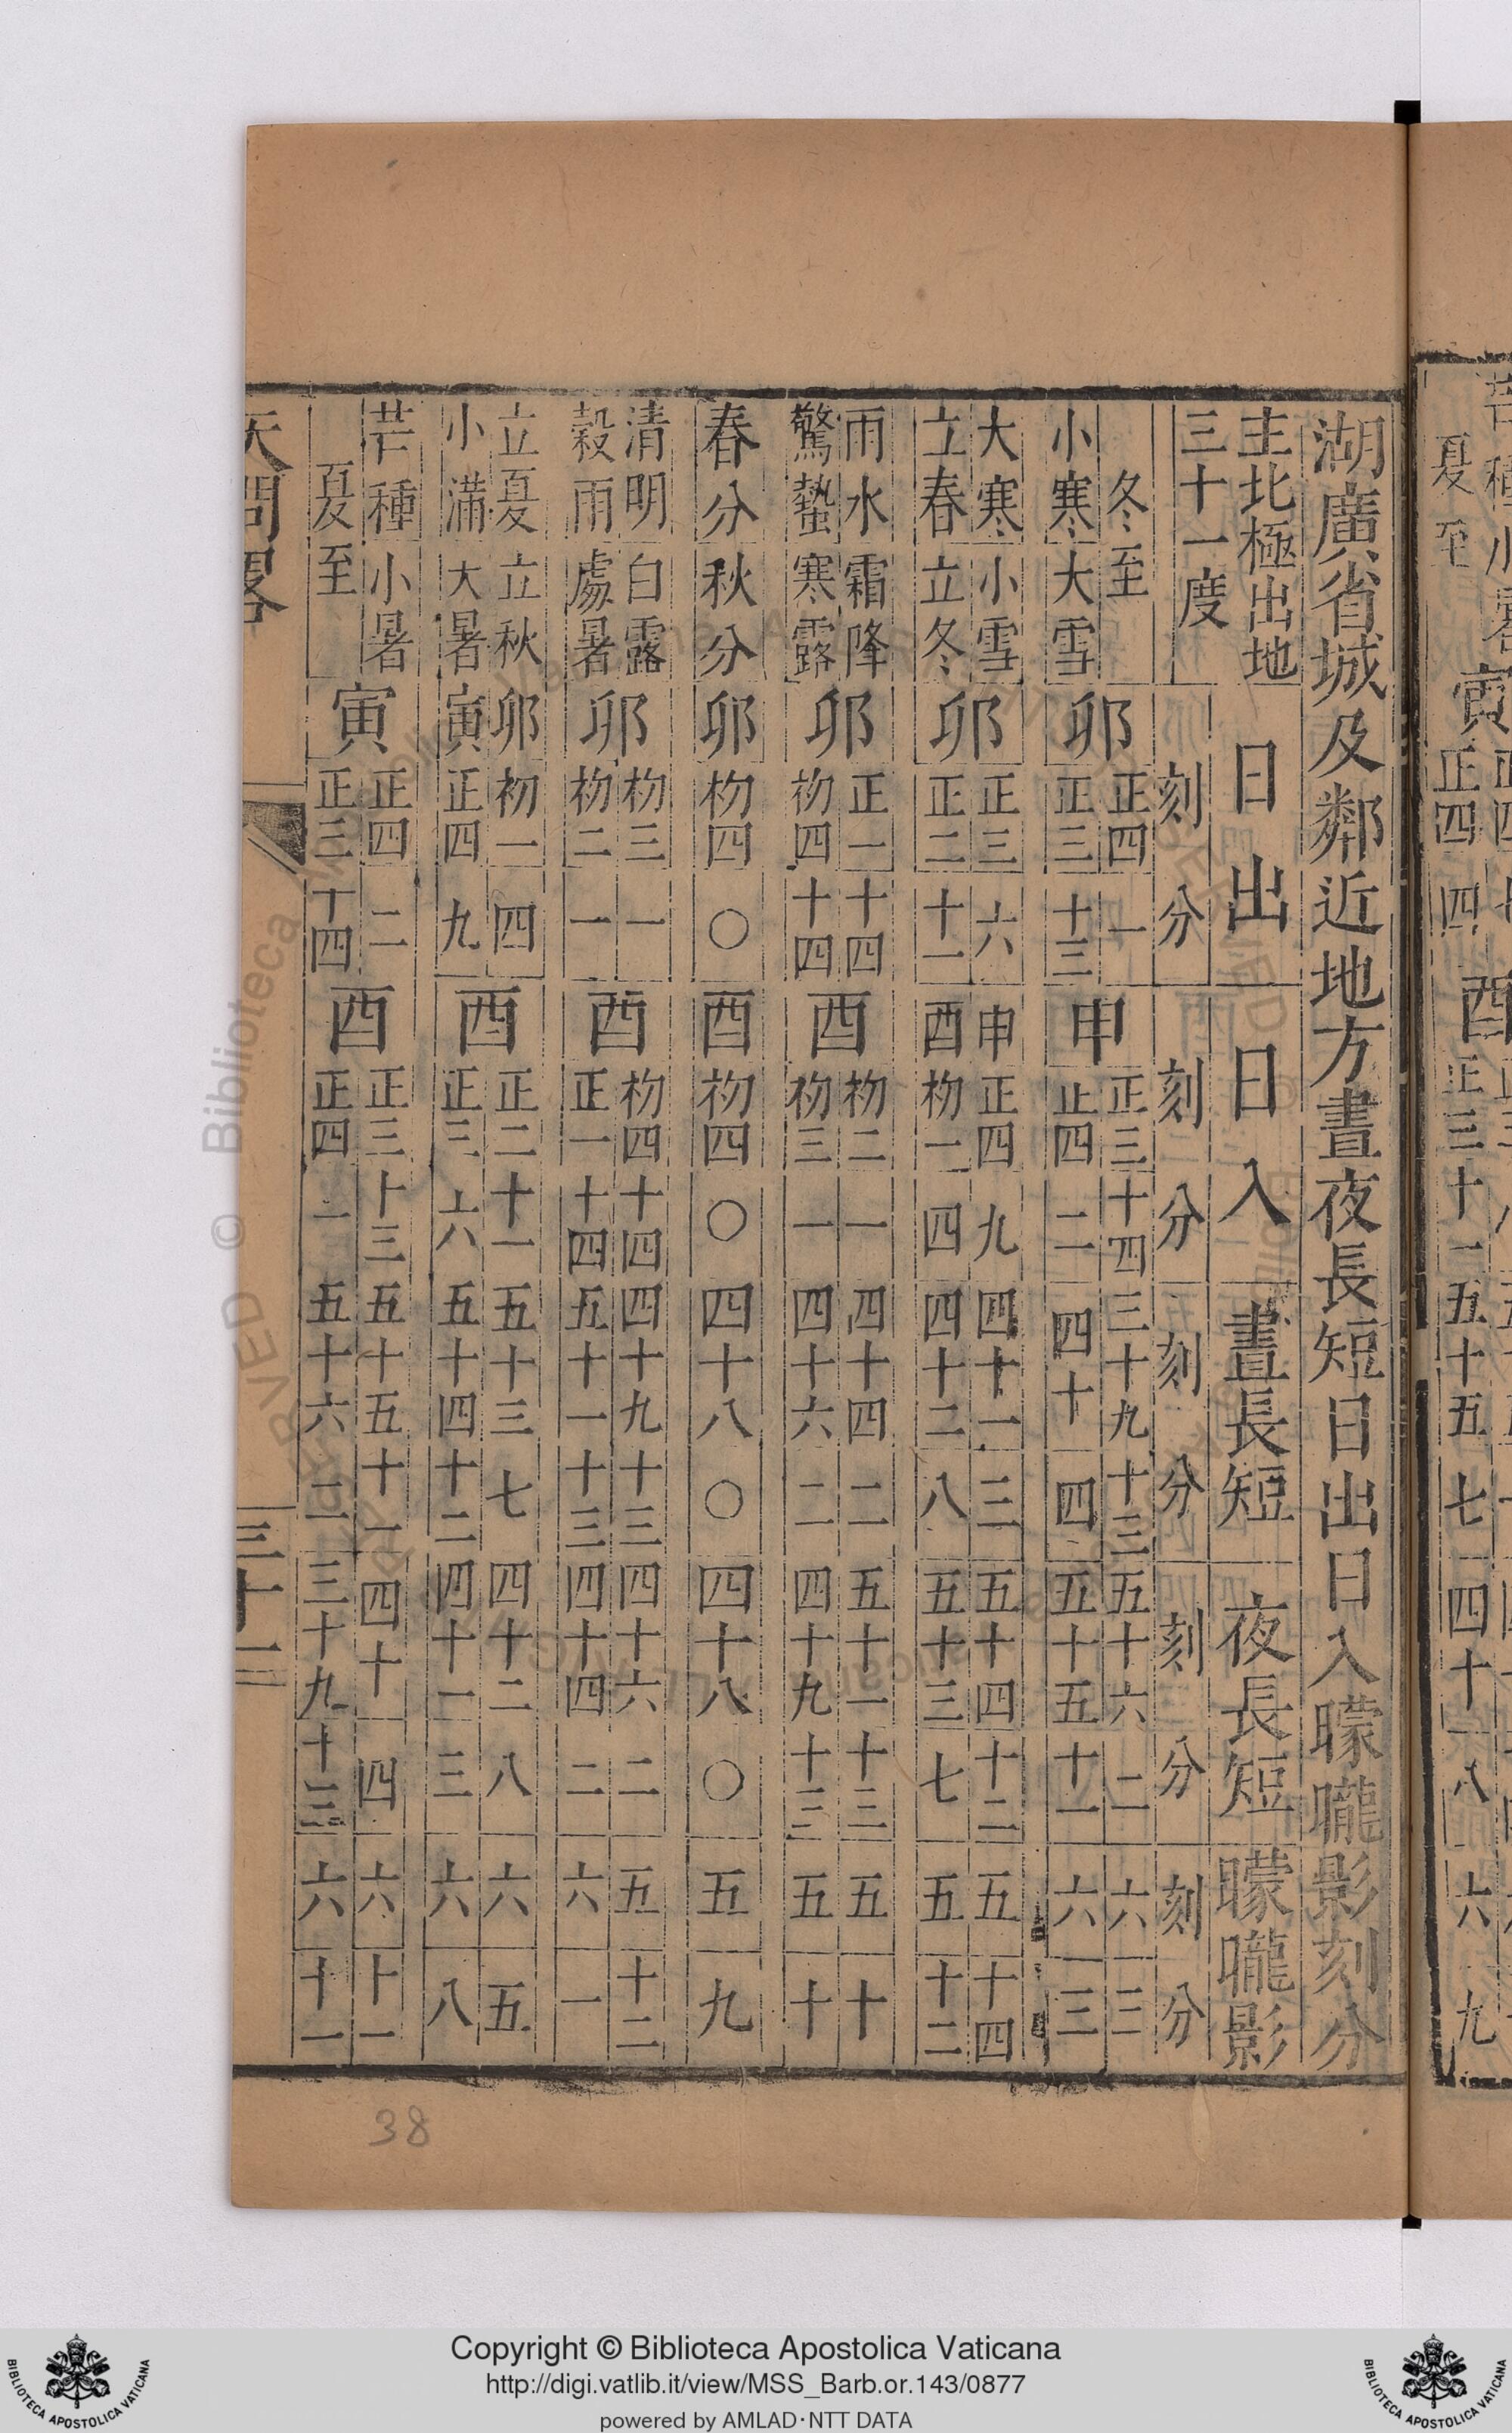 湖廣省城及鄰近地方晝夜長短日出日入曚曨影刻分
主北極出地
三十一度
日出 日入 晝長短 夜長短 曚曨影
刻 分 刻 分 刻 分 刻 分 刻 分
冬至 卯 正四 一 申 正三 十四 三十九 十三 五十六 二 六 三
小寒 大雪 正三 十三 正四 二 四十 四 五十五 十一 六 三
大寒 小雪 卯 正三 六 申 正四 九 四十一 三 五十四 十二 五 十四
立春 立冬 正二 十一 酉 初一 四 四十二 八 五十三 七 五 十二
雨水 霜降 卯 正一 十四 酉 初二 一 四十四 二 五十一 十三 五 十
驚蟄 寒露 初四 十四 初三 一 四十六 二 四十九 十三 五 十
春分 秋分 卯 初四 〇 酉 初四 〇 四十八 〇 四十八 〇 五 九
清明 白露 卯 初三 一 酉 初四 十四 四十九 十三 四十六 二 五 十二
穀雨 處暑 初二 一 正一 十四 五十一 十三 四十四 二 六 一
立夏 立秋 卯 初一 四 酉 正二 十一 五十三 七 四十二 八 六 五
小滿 大暑 寅 正四 九 正三 六 五十四 十二 四十一 三 六 八
芒種 小暑 寅 正四 二 酉 正三 十三 五十五 十一 四十 四 六 十一
夏至 正三 十四 正四 二 五十六 二 三十九 十三 六 十一
天問畧
三十一
38
寅
酉
夏至 正四 四 正三 十一 五十五 七 四十 八 六 九
Copyright © Biblioteca Apostolica Vaticana
http://digi.vatlib.it/view/MSS_Barb.or.143/0877
powered by AMLAD·NTT DATA
BIBLIOTECA APOSTOLICA VATICANA
BIBLIOTECA APOSTOLICA VATICANA